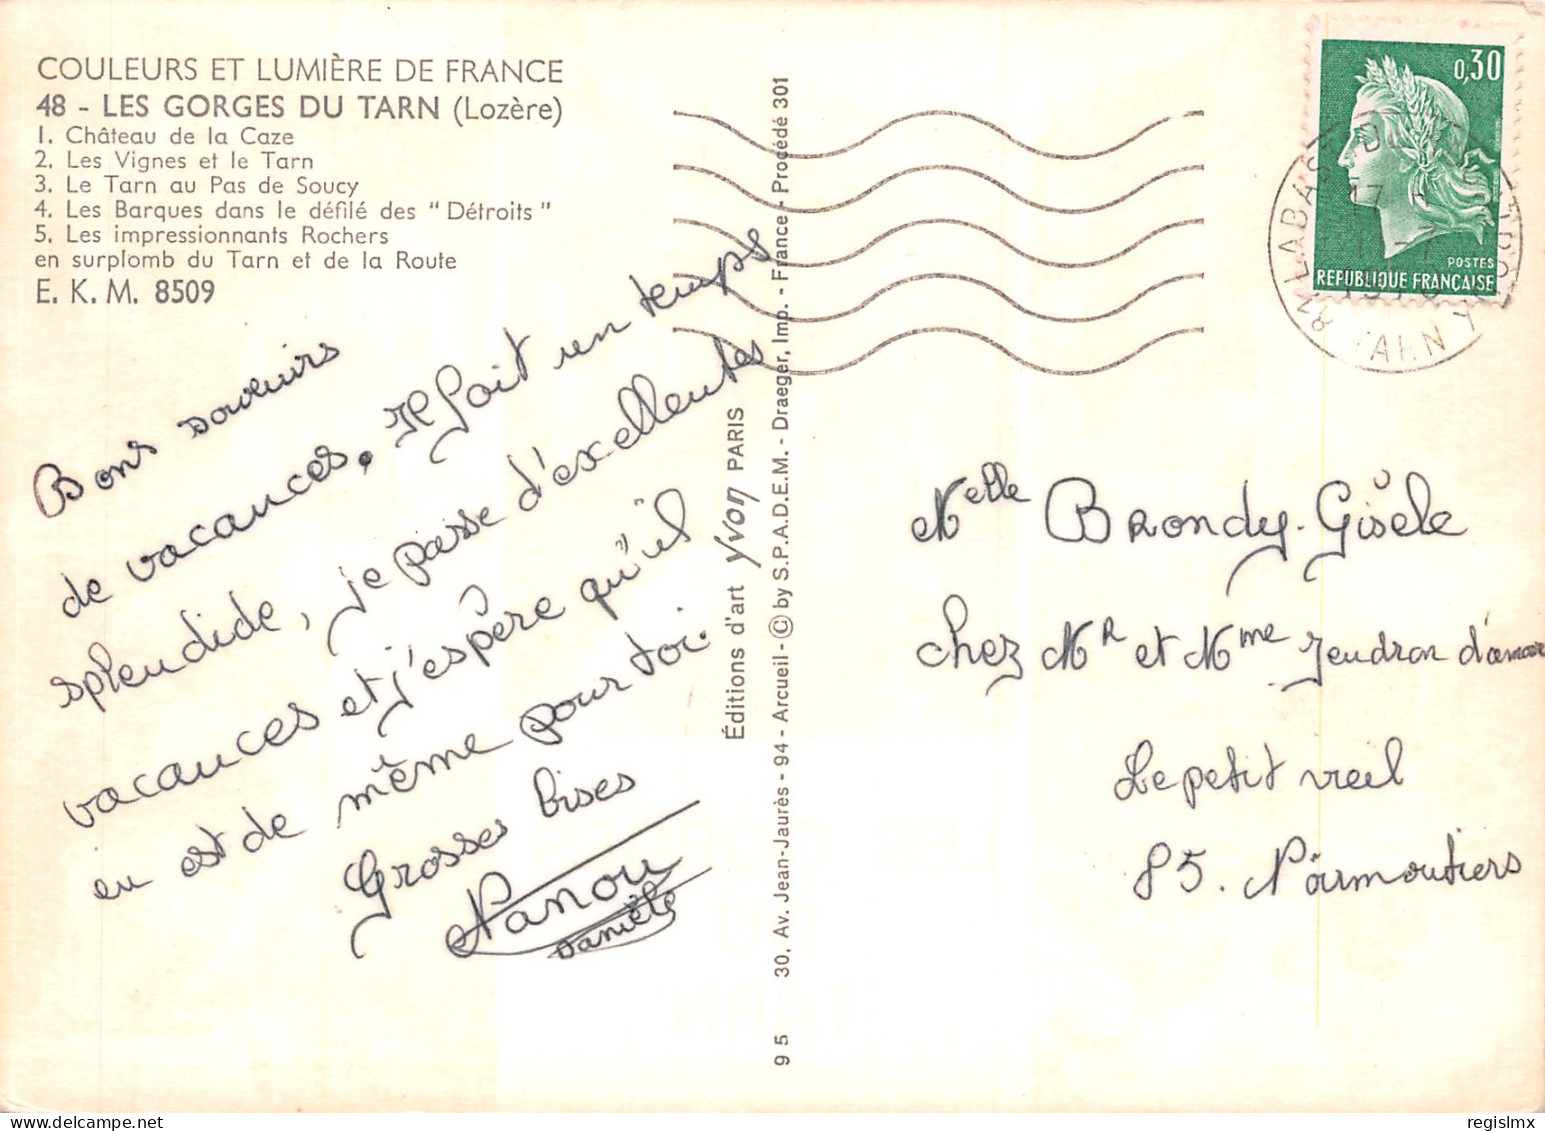 COULEURS ET LUMIÈRE DE FRANCE
48 - LES GORGES DU TARN (Lozère)
1. Château de la Caze
2. Les Vignes et le Tarn
3. Le Tarn au Pas de Soucy
4. Les Barques dans le défilé des "Détroits"
5. Les impressionnants Rochers
en surplomb du Tarn et de la Route
E. K. M. 8509
Bons souvenirs
de vacances. Il fait un temps
splendide, je passe d'excellentes
vacances et j'espère qu'il
en est de même pour toi.
Grosses bises
Nanou
Danièle
Éditions d'art Yvon PARIS
95 30, Av. Jean-Jaurès - 94 - Arcueil - © by S.P.A.D.E.M. - Draeger, Imp. - France - Procédé 301
0,30
POSTES
REPUBLIQUE FRANÇAISE
81 LABAST
TARN
17
Melle Brondy Gisèle
chez Mr et Mme Jendron
Le petit vieil
85. Noirmoutiers
regislmx